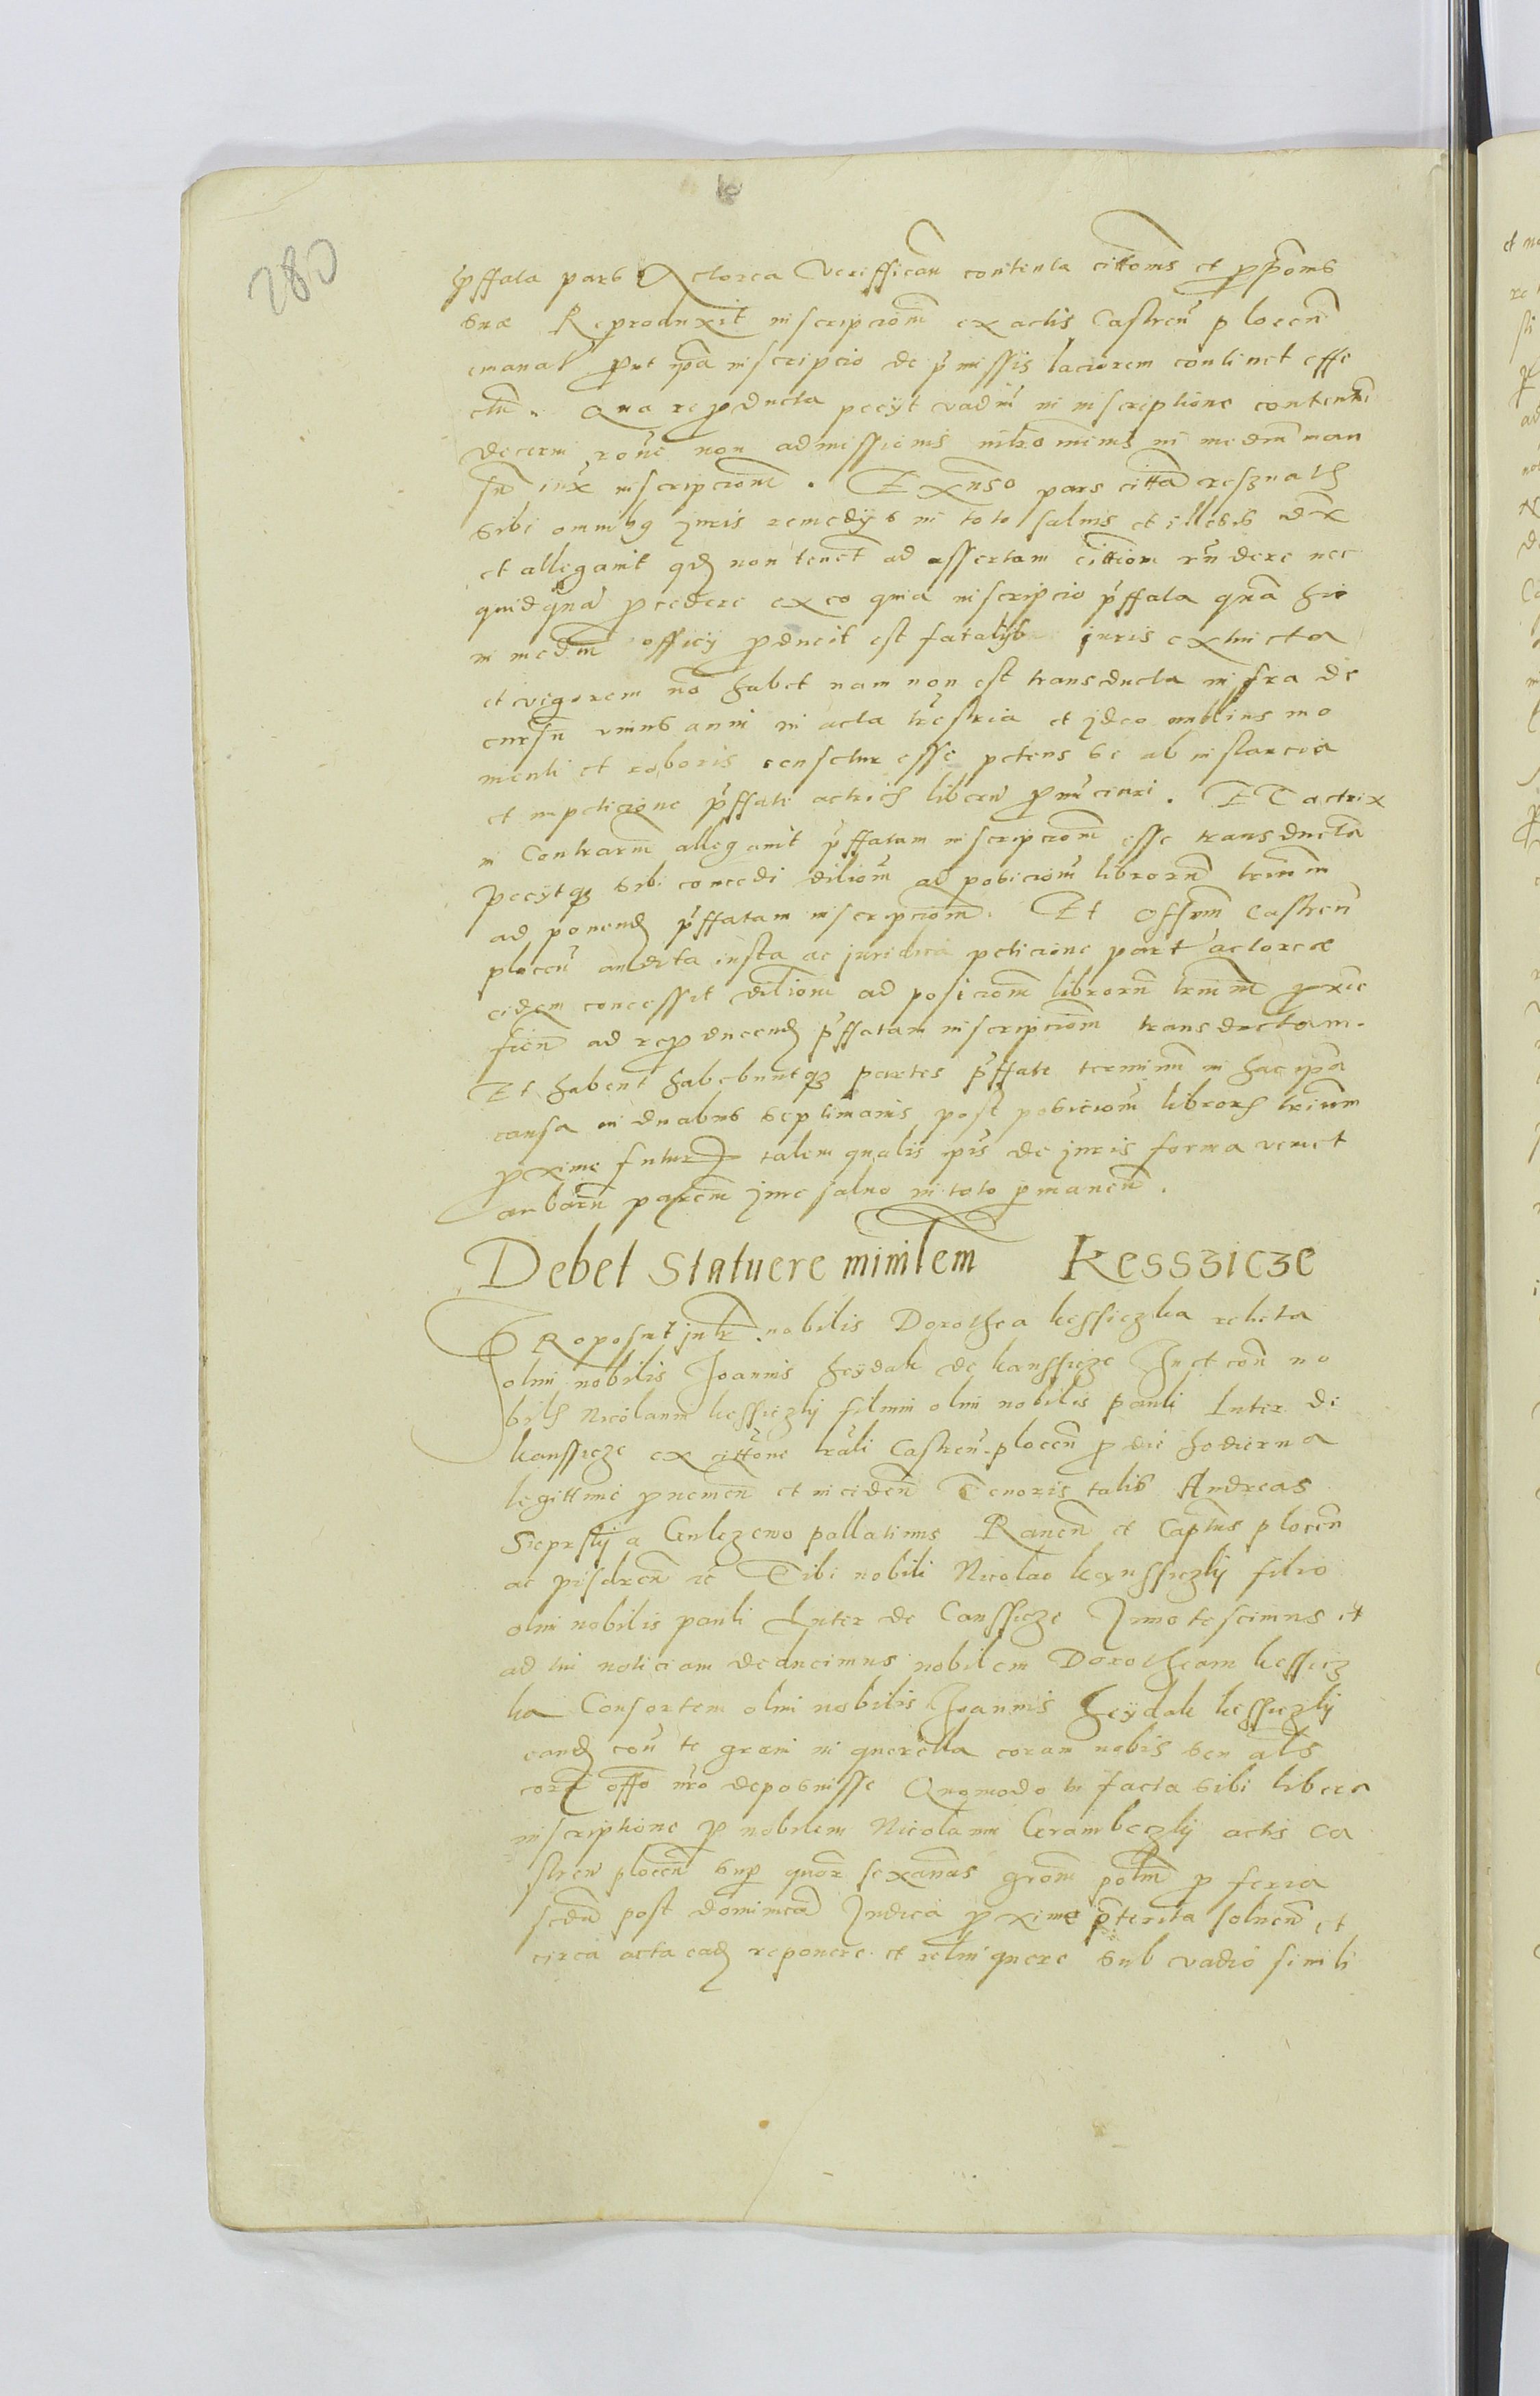 280
pffata pars Actorea veriffican contenta cittonis et pposonis
sue Reproduxit inscripcionem ex actis Castren plocen
emanat put ipa inscripcio de pmissis laciorem continet effe
ctu. Qua repducta peciyt vadiu in inscriptione contentu
decerni rone non admissionis intromissionis in medium man
su iux inscripcionem. Ex adverso pars citta reseruatis
sibi omnibus juris remedys in toto saluis et illesis dix
et allegauit quod non tenet ad assertam cittiom rndere nec
quidqua pcedere ex eo quia inscripcio pffata qua hic
in medm officy pducit est fatalyb juris extincta
et vigorem no habet nam non est transducta infra de
cursu vnius anni in acta trestria et jdeo nullius mo
menti et roboris censetur esse petens se ab instancia
et impeticione pffate actricis liberu pnuciari. ET actrix
in Contrarm allegauit pffatam inscripciom esse transducta
peciytq sibi concedi diliom ad posiciom libroru trium
ad ponend pffatam inscripciom. Et Offium Castren
plocen audita iusta ac juridica peticione part actoree
eidem concessit dilliom ad posiciom libroru trium pxie
fien ad repducend pffatam inscripciom transductam.
Et habent habebuntq partes pffate terminu in hac ipa
causa in duabus septimanis post posiciom libror trium
pxime futur talem qualis ipis de juris forma venit
ambaru parcm jure saluo in toto pmanen.
Debet Statuere minitem Kesszicze
Proposuit jntr nobilis Dorothea kessiczka relicta
olim nobilis Joannis heydak de kanssicze In et con no
bilem Nicolaum kessiczky filium olim nobilis pauli Luter de
kanssicze ex cittone rali Castren plocen p die hodierna
legittime pnemen et inciden Tenoris talis Andreas
Sieprsky a Gulczewo pallatinus Rauen et Captus plocen
ac pisdren ic Tibi nobili Nicolao kaynssiczky filio
olim nobilis pauli Luter de Canssicze Jnnotescimus et
ad tui noticiam deducimus nobilem Dorotheam kessicz
ka Consortem olim nobilis Joannis heydak kessiczky
eand con te graui in querella coram nobis seu als
cora offo nro deposuisse Quomodo tu facta sibi libera
inscriptione p nobilem Nicolaum Grambeczky actis Ca
stren plocen sup quor sexagenas grom polm p feria
scda post dominica Judica pxime pterita soluen et
circa acta ead reponere et relinquere sub vadio simili